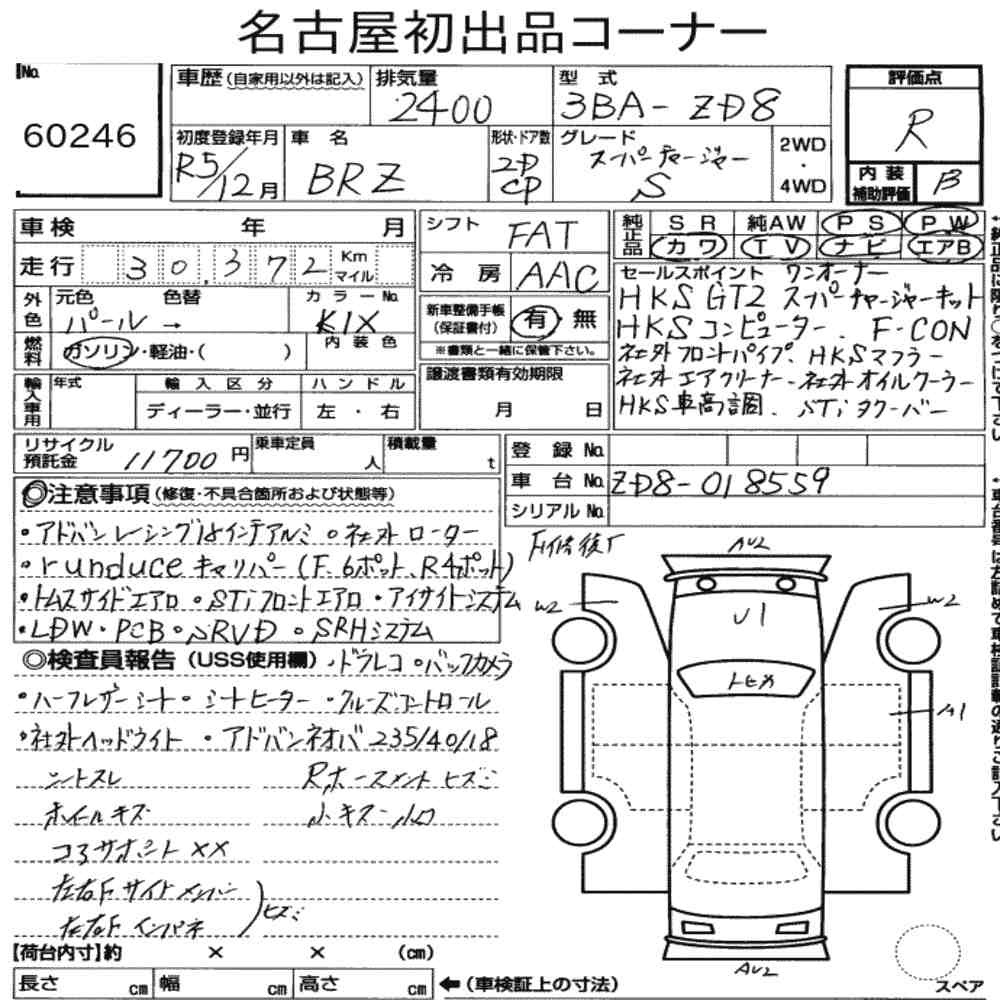 名古屋初出品コーナー
No. 60246
車歴(自家用以外は記入)
排気量 2400
型式 3BA-ZD8
評価点 R
初度登録年月 R5/12月
車名 BRZ
形状・ドア数 2D CP
グレード スーパーチャージャー S
2WD・4WD
内装補助評価 B
車検 年 月
シフト FAT
純正品 SR 純AW PS PW
カワ TV ナビ エアB
走行 30,372 Km マイル
冷房 AAC
セールスポイント ワンオーナー
HKS GT2 スーパーチャージャーキット
HKSコンピューター. F-CON
社外フロントパイプ、HKSマフラー
社外エアクリーナー・社外オイルクーラー
HKS車高調. STiタワーバー
外色 元色 パール → 色替
カラーNo. K1X
内装色
燃料 ガソリン・軽油・( )
新車整備手帳(保証書付) 有・無
※書類と一緒に保管下さい。
譲渡書類有効期限
月 日
輸入車用 年式 輸入区分 ハンドル
ディーラー・並行 左・右
リサイクル預託金 11700円
乗車定員 人
積載量 t
登録No.
車台No. ZD8-018559
シリアルNo.
◎注意事項(修復・不具合箇所および状態等)
・アドバンレーシング18インチアルミ ・社外ローター
・runduceキャリパー(F.6ポット、R4ポット)
・トムスサイドエアロ ・STiフロントエアロ ・アイサイトシステム
・LDW・PCB・SRVD ・SRHシステム
◎検査員報告(USS使用欄)・ドラレコ・バックカメラ
・ハーフレザーシート・シートヒーター・クルーズコントロール
・社外ヘッドライト ・アドバンネオバ235/40/18
シートスレ
Rホースメントヒズミ
ホイールキズ
小キズ・小凹
コアサポートXX
左右Fサイドメンバー
左右Fインパネ
ヒズミ
【荷台内寸】約 × × (cm)
長さ cm 幅 cm 高さ cm ←(車検証上の寸法)
AU2
U1
W2
W2
A1
AU2
スペア